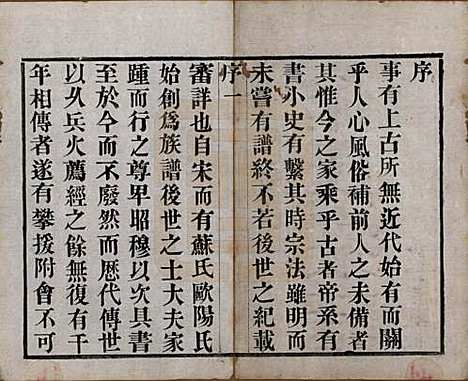 序
事有上古所無近代始有而關
乎人心風俗補前人之未備者
其惟今之家乘乎古者帝系有
書小史有繫其時宗法雖明而
未嘗有譜終不若後世之紀載
序一
審詳也自宋而有蘇氏歐陽氏
始創爲族譜後世之士大夫家
踵而行之尊卑昭穆以次具書
至於今而不廢然而歷代傳世
以久兵火薦經之餘無復有千
年相傳者遂有攀援附會不可